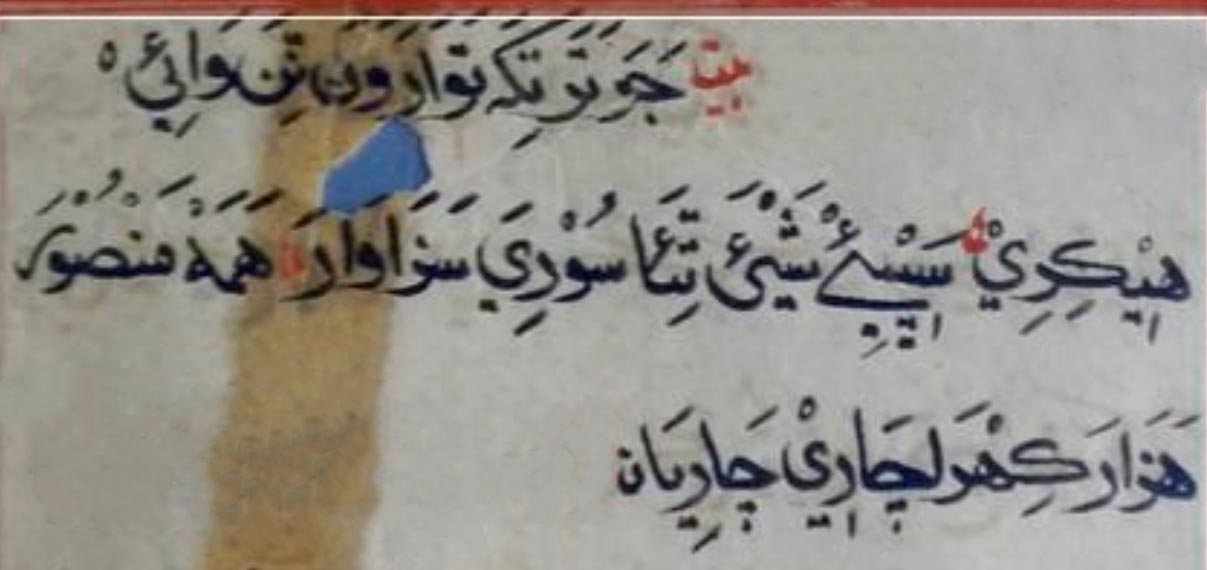 بيت جَرَ تَرَ تِکہ تَوارَ وَنَ تِنِ وَائِيْ ه
هِيْکِرِيْ سَڀْيئِيْ شَيْئِ تِئَا سُوْرِيَ سَزَاوَارَ هَمَہْ مَنْصُوْرَ
هَزَارَ کِهْرَا چَارِيْ چَارِيَان